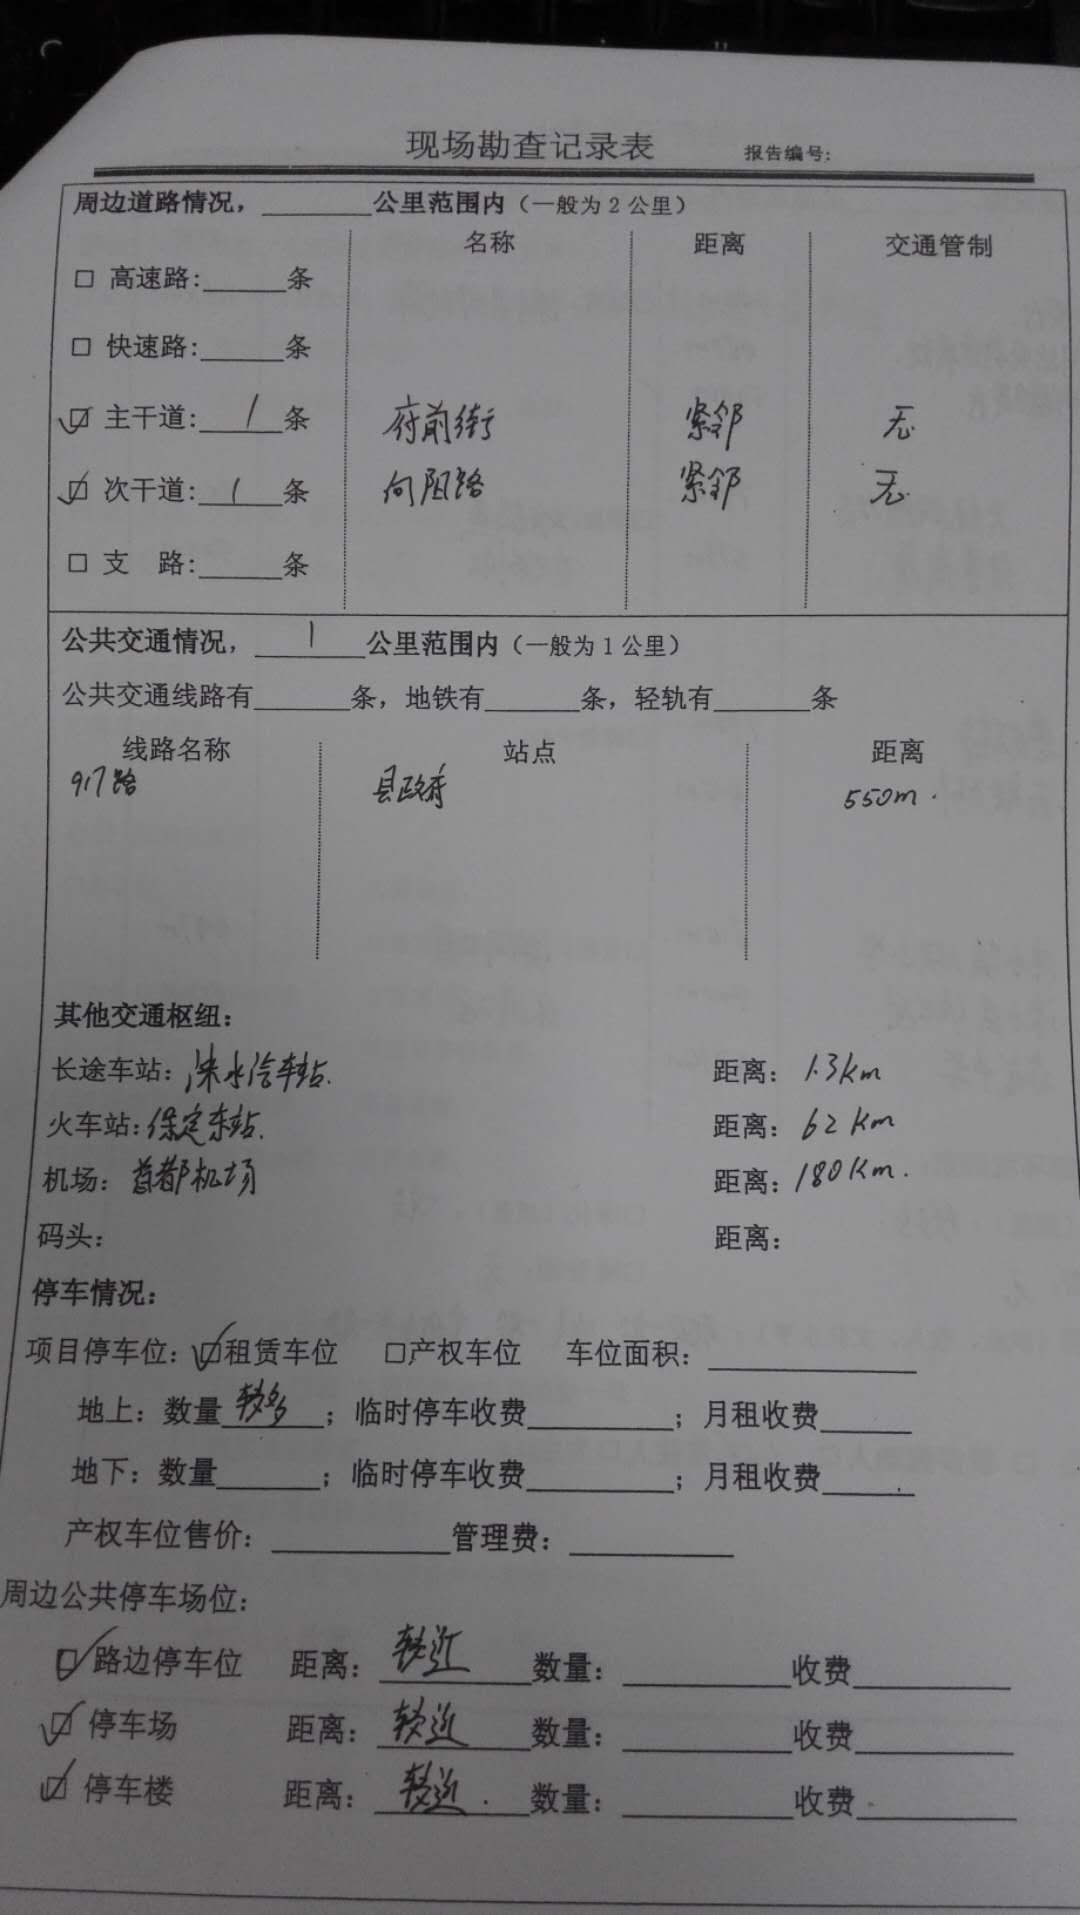 现场勘查记录表 报告编号:
周边道路情况，________公里范围内（一般为 2 公里）
名称 距离 交通管制
□ 高速路:______条
□ 快速路:______条
☑ 主干道: 1 条 府前街 紧邻 无
☑ 次干道: 1 条 向阳路 紧邻 无
□ 支 路:______条
公共交通情况， 1 公里范围内（一般为 1 公里）
公共交通线路有_______条，地铁有_______条，轻轨有_______条
线路名称 站点 距离
917路 县政府 550m.
其他交通枢纽：
长途车站：涞水汽车站. 距离：1.3km
火车站：保定东站. 距离：62km
机场：首都机场 距离：180Km.
码头： 距离：
停车情况：
项目停车位：☑租赁车位 □产权车位 车位面积：_______________
地上：数量 较多 ；临时停车收费__________；月租收费______
地下：数量_______；临时停车收费__________；月租收费______
产权车位售价：____________管理费：___________
周边公共停车场位：
☑路边停车位 距离：较近 数量：___________收费__________
☑ 停车场 距离：较近 数量：___________收费__________
☑ 停车楼 距离：较近. 数量：___________收费__________